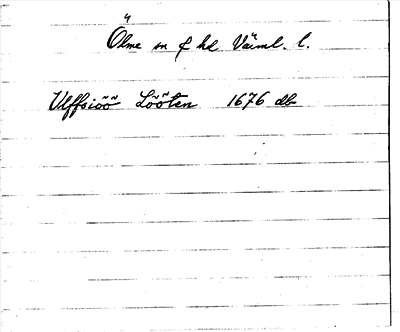 Ölme sn f hd Värml. l.
Ulffsiöö Lööten 1676 db